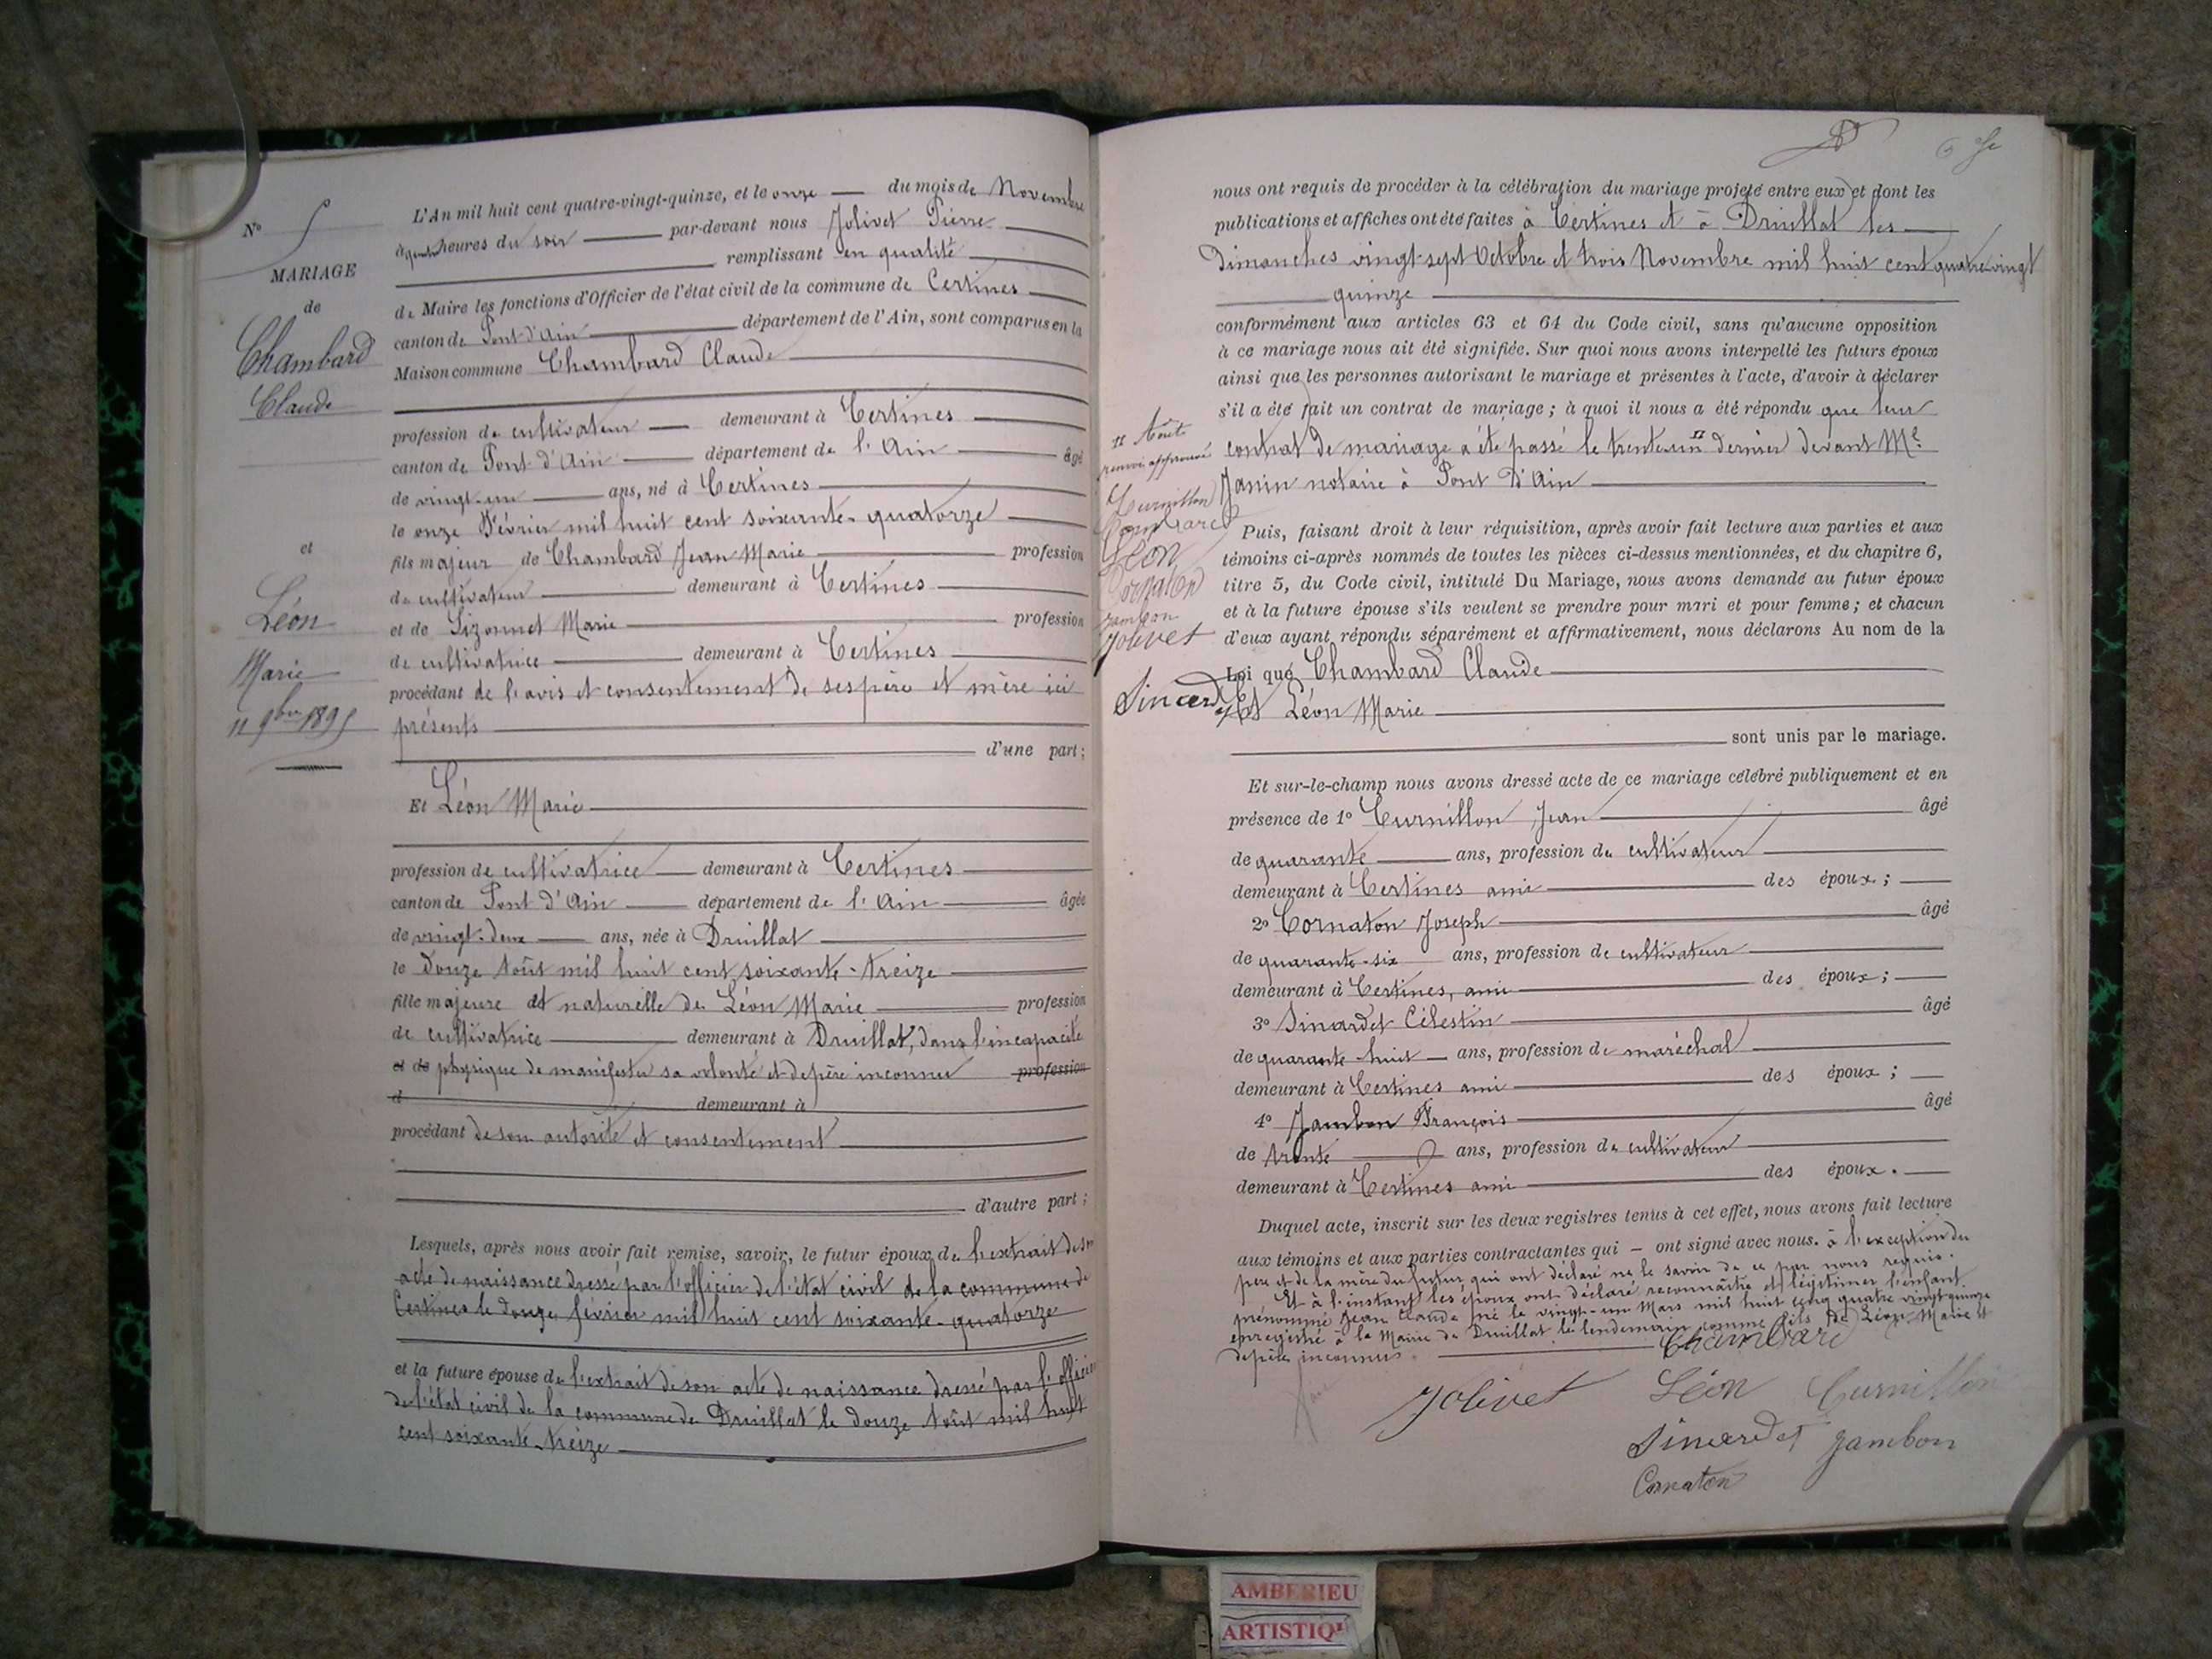 N° 5
MARIAGE
de
Chambard
Claude
et
Léon
Marie
11 9bre 1895
L'An mil huit cent quatre-vingt-quinze, et le onze du mois de Novembre
à quatre heures du soir par-devant nous Jolivet Pierre
remplissant en qualité
de Maire les fonctions d'Officier de l'état civil de la commune de Certines
canton de Pont d'Ain département de l'Ain, sont comparus en la
Maison commune Chambard Claude
profession de cultivateur demeurant à Certines
canton de Pont d'Ain département de l'Ain âgé
de vingt-un ans, né à Certines
le onze Février mil huit cent soixante-quatorze
fils majeur de Chambard Jean Marie profession
de cultivateur demeurant à Certines
et de Sizonnet Marie profession
de cultivatrice demeurant à Certines
procédant de l'avis et consentement de ses père et mère ici
présents
d'une part;
Et Léon Marie
profession de cultivatrice demeurant à Certines
canton de Pont d'Ain département de l'Ain âgée
de vingt-deux ans, née à Druillat
le douze Août mil huit cent soixante-treize
fille majeure et naturelle de Léon Marie profession
de cultivatrice demeurant à Druillat, dans l'incapacité
et de physique de manifester sa volonté et de père inconnu profession
d demeurant à
procédant de son autorité et consentement
d'autre part;
Lesquels, après nous avoir fait remise, savoir, le futur époux de l'extrait de son
acte de naissance dressé par l'officier de l'état civil de la commune de
Certines le douze février mil huit cent soixante-quatorze
et la future épouse de l'extrait de son acte de naissance dressé par l'officier
de l'état civil de la commune de Druillat le douze Août mil huit
cent soixante-treize
6
nous ont requis de procéder à la célébration du mariage projeté entre eux et dont les
publications et affiches ont été faites à Certines et à Druillat les
Dimanches vingt-sept Octobre et trois Novembre mil huit cent quatre-vingt
quinze
conformément aux articles 63 et 64 du Code civil, sans qu'aucune opposition
à ce mariage nous ait été signifiée. Sur quoi nous avons interpellé les futurs époux
ainsi que les personnes autorisant le mariage et présentes à l'acte, d'avoir à déclarer
s'il a été fait un contrat de mariage; à quoi il nous a été répondu que leur
contrat de mariage a été passé le trente-un dernier devant Me
Janin notaire à Pont d'Ain
Août
renvoi approuvé
Curnillon
Chambard
Léon
Cornaton
Jambon
Jolivet
Sincerdet
Puis, faisant droit à leur réquisition, après avoir fait lecture aux parties et aux
témoins ci-après nommés de toutes les pièces ci-dessus mentionnées, et du chapitre 6,
titre 5, du Code civil, intitulé Du Mariage, nous avons demandé au futur époux
et à la future épouse s'ils veulent se prendre pour mari et pour femme; et chacun
d'eux ayant répondu séparément et affirmativement, nous déclarons Au nom de la
Loi que Chambard Claude
Et Léon Marie
sont unis par le mariage.
Et sur-le-champ nous avons dressé acte de ce mariage célébré publiquement et en
présence de 1° Curnillon Jean âgé
de quarante ans, profession de cultivateur
demeurant à Certines ami des époux;
2° Cornaton Joseph âgé
de quarante-six ans, profession de cultivateur
demeurant à Certines, ami des époux;
3° Sinardet Célestin âgé
de quarante-huit ans, profession de maréchal
demeurant à Certines ami des époux;
4° Jambon François âgé
de trente ans, profession de cultivateur
demeurant à Certines ami des époux.
Duquel acte, inscrit sur les deux registres tenus à cet effet, nous avons fait lecture
aux témoins et aux parties contractantes qui – ont signé avec nous. à l'exception du
père et de la mère du futur qui ont déclaré ne le savoir de ce par nous requis.
Et à l'instant les époux ont déclaré reconnaître et légitimer l'enfant
prénommé Jean Claude né le vingt-un Mars mil huit cent quatre vingt quinze
enregistré à la Mairie de Druillat le lendemain comme fils de Léon Marie et
de père inconnu.
Chambard
Jolivet Léon Curnillon
Sincerdet Jambon
Cornaton
AMBERIEU
ARTISTIQ